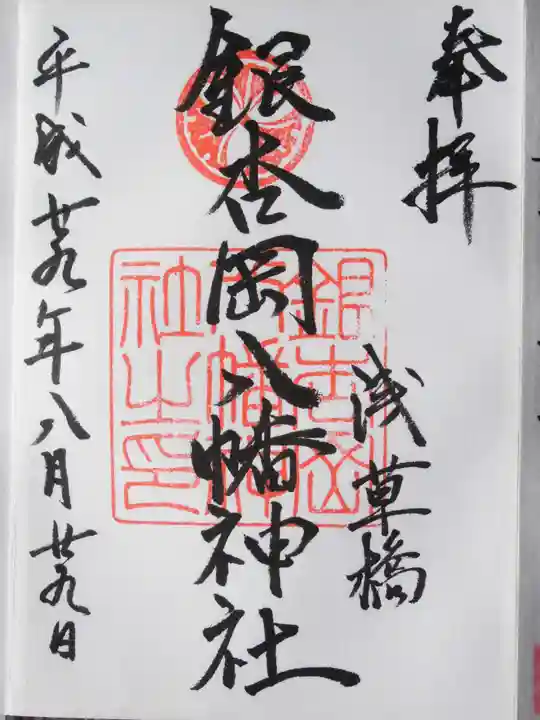 奉拝
浅草橋
銀杏岡八幡神社
銀杏岡
八幡神
社之印
平成廿九年八月廿九日